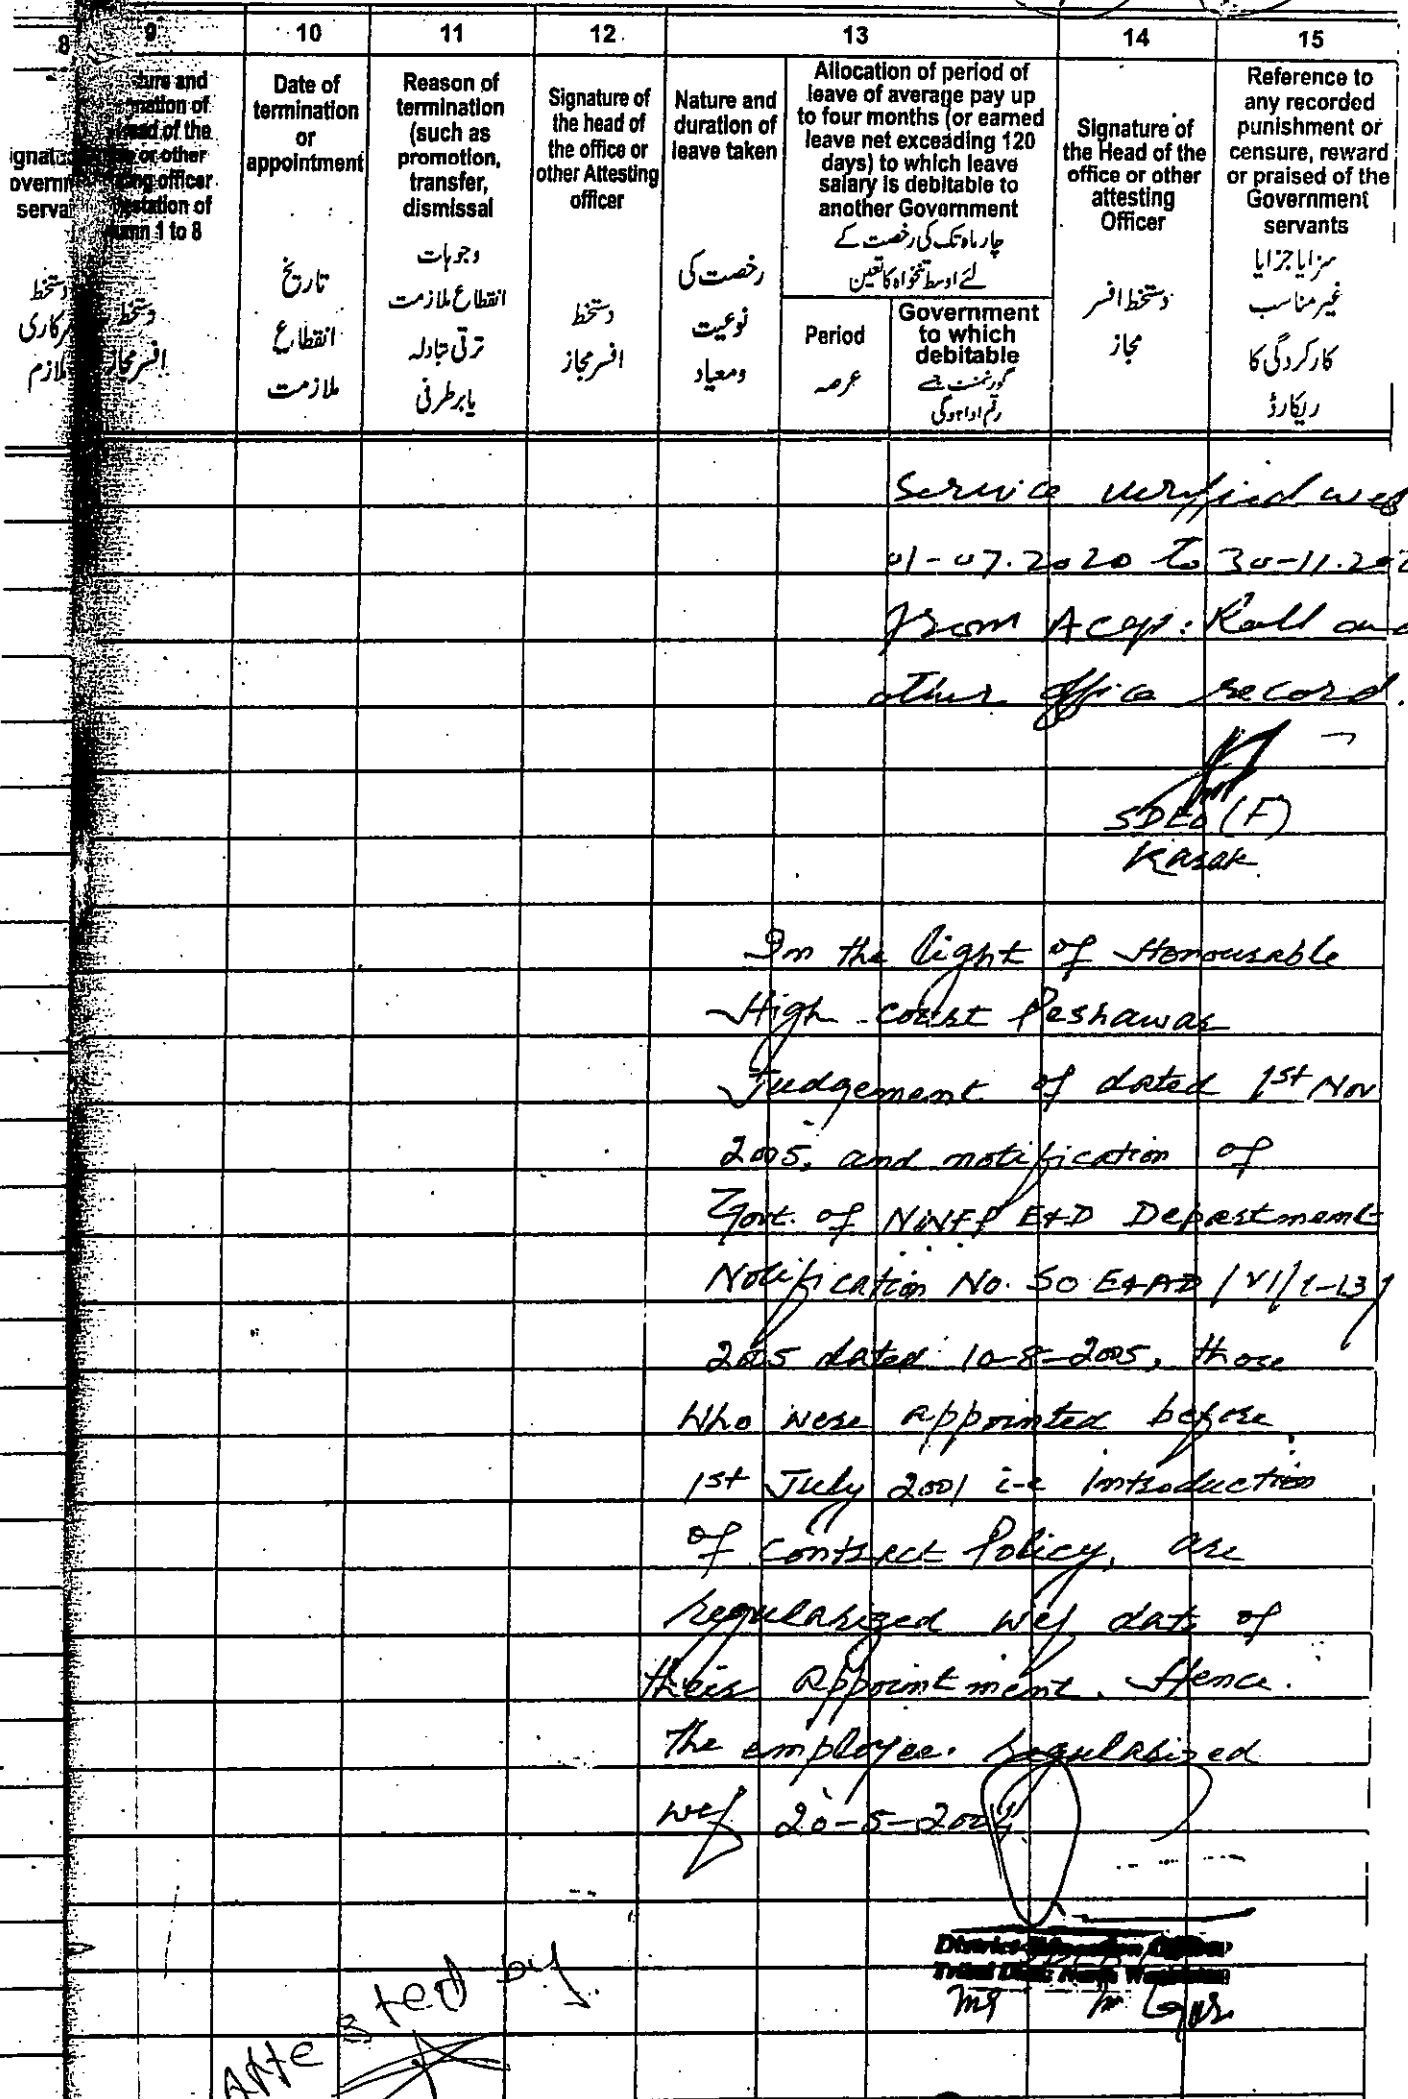 8 9 10 11 12 13 14 15
ignatu
overnm
serva
دستخط
سرکاری
ملازم
ture and
nation of
head of the
or other
ing officer
testation of
umn 1 to 8
دستخط
افسر مجاز
Date of
termination
or
appointment
تاریخ
انقطاع
ملازمت
Reason of
termination
(such as
promotion,
transfer,
dismissal
وجوہات
انقطاع ملازمت
ترقی تبادلہ
یا برطرفی
Signature of
the head of
the office or
other Attesting
officer
دستخط
افسر مجاز
Nature and
duration of
leave taken
رخصت کی
نوعیت
ومعیاد
Allocation of period of
leave of average pay up
to four months (or earned
leave net exceeding 120
days) to which leave
salary is debitable to
another Government
چار ماہ تک کی رخصت کے
لئے اوسط تنخواہ کا تعین
Period
عرصہ
Government
to which
debitable
گورنمنٹ جسے
رقم ادا ہوگی
Signature of
the Head of the
office or other
attesting
Officer
دستخط افسر
مجاز
Reference to
any recorded
punishment or
censure, reward
or praised of the
Government
servants
سزا یا جزا یا
غیر مناسب
کارکردگی کا
ریکارڈ
Service verified wef
01-07.2020 to 30-11.202
from Acqp: Roll and
other office record.
SDEO (F)
Razak
In the light of Honourable
High court Peshawar
Judgement of dated 1st Nov
2005, and notification of
Govt. of NWFP E&D Department
Notification No. SO E&AD /VI/1-13/
2005 dated 10-8-2005, those
who were appointed before
1st July 2001 i-e Introduction
of Contract Policy, are
regularized wef date of
their appointment. Hence.
The employee. regularized
wef 20-5-2004
District Education Officer
Tribal Distt: North Waziristan
Attested by